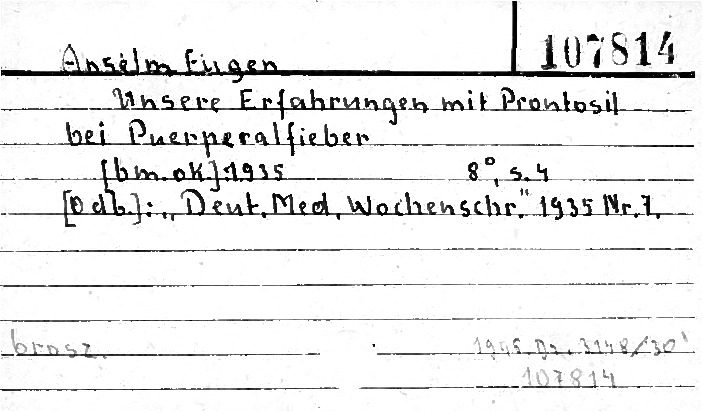 107814
Anselm Eugen
Unsere Erfahrungen mit Prontosil
bei Puerperalfieber
[bm.ok.] 1935 8°, s. 4
[Odb.]: „Deut. Med. Wochenschr." 1935 Nr. 7.
brosz.
1945 Dz. 3148/30'
107814